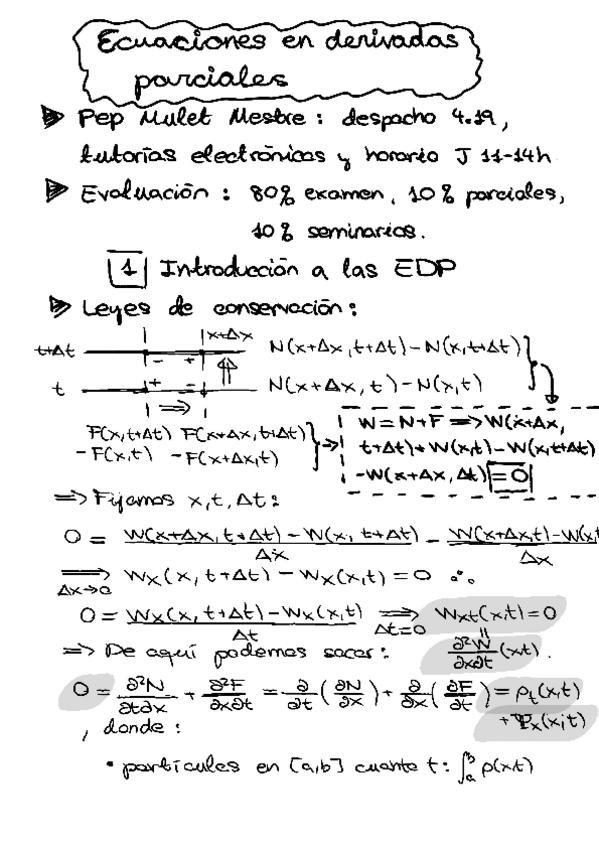 Ecuaciones en derivadas
parciales
Pep Mulet Mestre: despacho 4.19,
tutorías electrónicas y horario J 11-14h
Evaluación: 80% examen, 10% parciales,
10% seminarios.
1 Introducción a las EDP
Leyes de conservación:
x+Δx
t+Δt N(x+Δx, t+Δt) - N(x, t+Δt)
t N(x+Δx, t) - N(x, t)
F(x, t+Δt) F(x+Δx, t+Δt)
- F(x, t) - F(x+Δx, t)
W = N+F => W(x+Δx,
t+Δt) + W(x,t) - W(x, t+Δt)
- W(x+Δx, Δt) = 0
=> Fijamos x, t, Δt:
0 = W(x+Δx, t+Δt) - W(x, t+Δt) / Δx - W(x+Δx, t) - W(x, t / Δx
=> Δx→0 Wx(x, t+Δt) - Wx(x, t) = 0 ∴
0 = Wx(x, t+Δt) - Wx(x, t) / Δt => Δt=0 Wxt(x, t) = 0
=> De aquí podemos sacar: ∂²W/∂x∂t (x, t).
0 = ∂²N/∂t∂x + ∂²F/∂x∂t = ∂/∂t (∂N/∂x) + ∂/∂x (∂F/∂t) = ρt(x, t)
+ Ψx(x, t)
, donde:
• partículas en [a,b] cuante t: ∫ₐᵇ ρ(x, t)